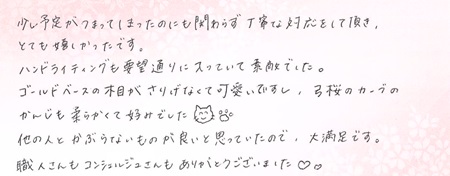 少し予定がつまってしまったのにも関わらず丁寧な対応をして頂き、
とても嬉しかったです。
ハンドライティングも要望通りに入っていて素敵でした。
ゴールドベースの木目がさりげなくて可愛いですし、弓桜のカーブの
かんじも柔らかくて好みでした
他の人とかぶらないものが良いと思っていたので、大満足です。
職人さんもコンシェルジュさんもありがとうございました♡♡